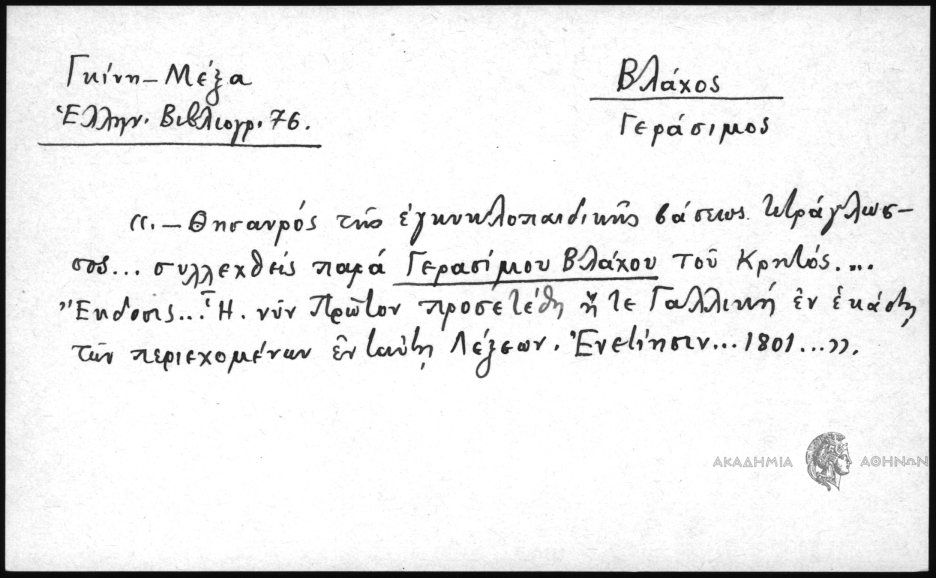 Γκίνη – Μέξα
Ἑλλην. Βιβλιογρ. 76.
Βλάχος
Γεράσιμος
«. – Θησαυρός τῆς ἐγκυκλοπαιδικῆς βάσεως τετράγλωσ-
σος... συλλεχθείς παρά Γερασίμου Βλάχου τοῦ Κρητός....
Ἔκδοσις... Ἡ. νῦν Πρῶτον προσετέθη ἥ τε Γαλλική ἐν ἑκάστῃ
τῶν περιεχομένων ἐν ταύτῃ λέξεων. Ἐνετίησιν... 1801...».
ΑΚΑΔΗΜΙΑ ΑΘΗΝΩΝ